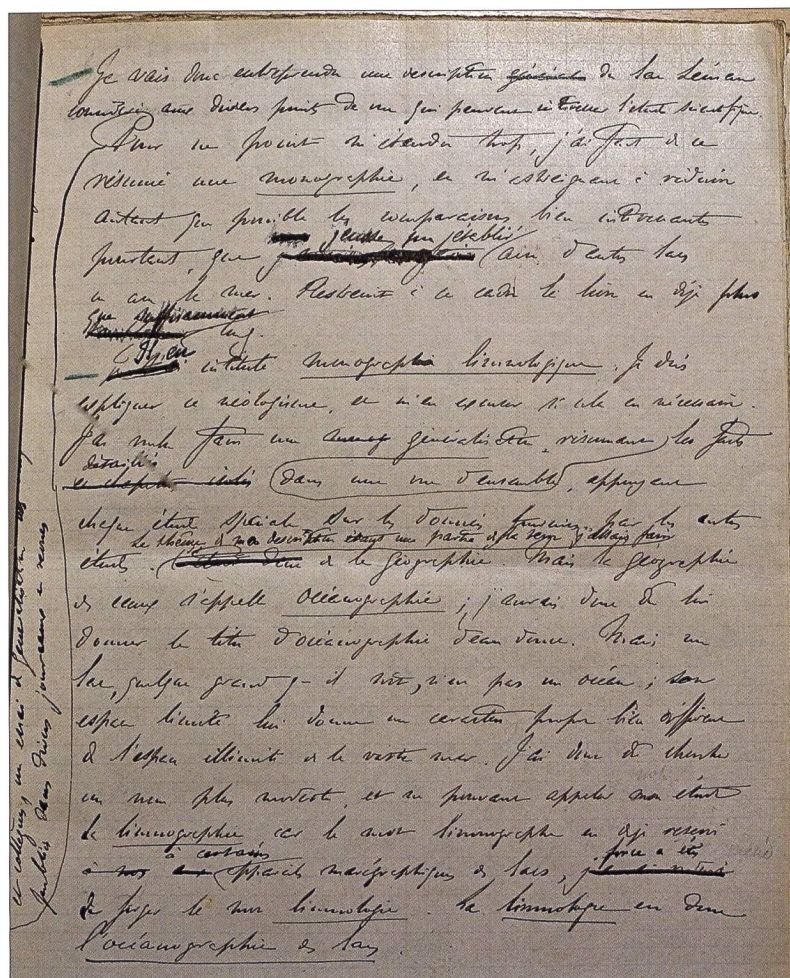 Je vais donc entreprendre une description générale du lac Léman
aux divers points de vue qui peuvent intéresser l'étude scientifique.
Pour ne point m'étendre trop, j'ai fait de ce
résumé une monographie, en m'astreignant à réduire
autant que possible les comparaisons bien intéressantes
pourtant, que j'eusse pu établir avec d'autres lacs
ou avec la mer. Restreint à ce cadre le livre est déjà plus
que suffisamment long.
intitulé monographie limnologique. Je dois
expliquer ce néologisme, et m'en excuser si cela est nécessaire.
J'ai voulu faire une généralisation, résumant les faits
détaillés
dans une vue d'ensemble, appuyant
chaque étude spéciale sur les données fournies par les autres
le thème de ma description étant une partie de la terre j'allais faire
études. de la géographie. Mais la géographie
des eaux s'appelle océanographie; j'aurais donc dû lui
donner le titre d'océanographie d'eau douce. Mais un
lac, quelque grand q- il soit, n'est pas un océan; son
espace limité lui donne un caractère propre bien différent
de l'espace illimité de la vaste mer. J'ai donc dû chercher
un nom plus modeste, et ne pouvant appeler mon étude
la limnographie car le mot limnographe est déjà réservé
à certains appareils marégraphiques des lacs, force a été
de forger le mot limnologie. La limnologie est donc
l'océanographie des lacs.
et collègues, un essai de généralisation
publiés dans divers journaux et revues